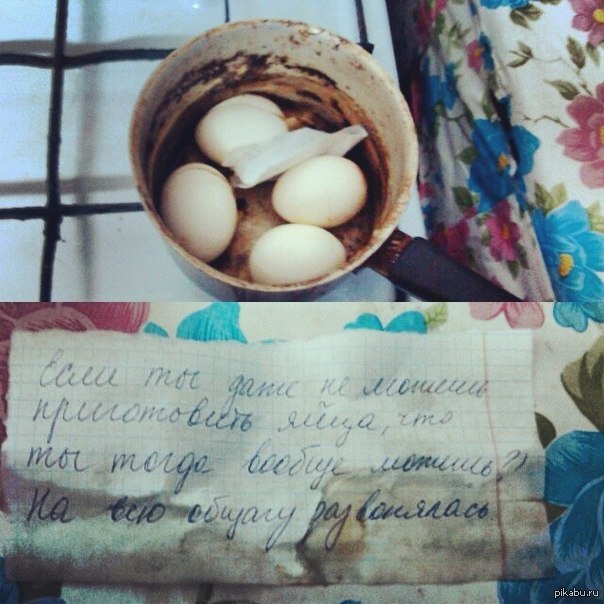 Если ты даже не можешь
приготовить яйца, что
ты тогда вообще можешь?)
На всю общагу развонялась
pikabu.ru